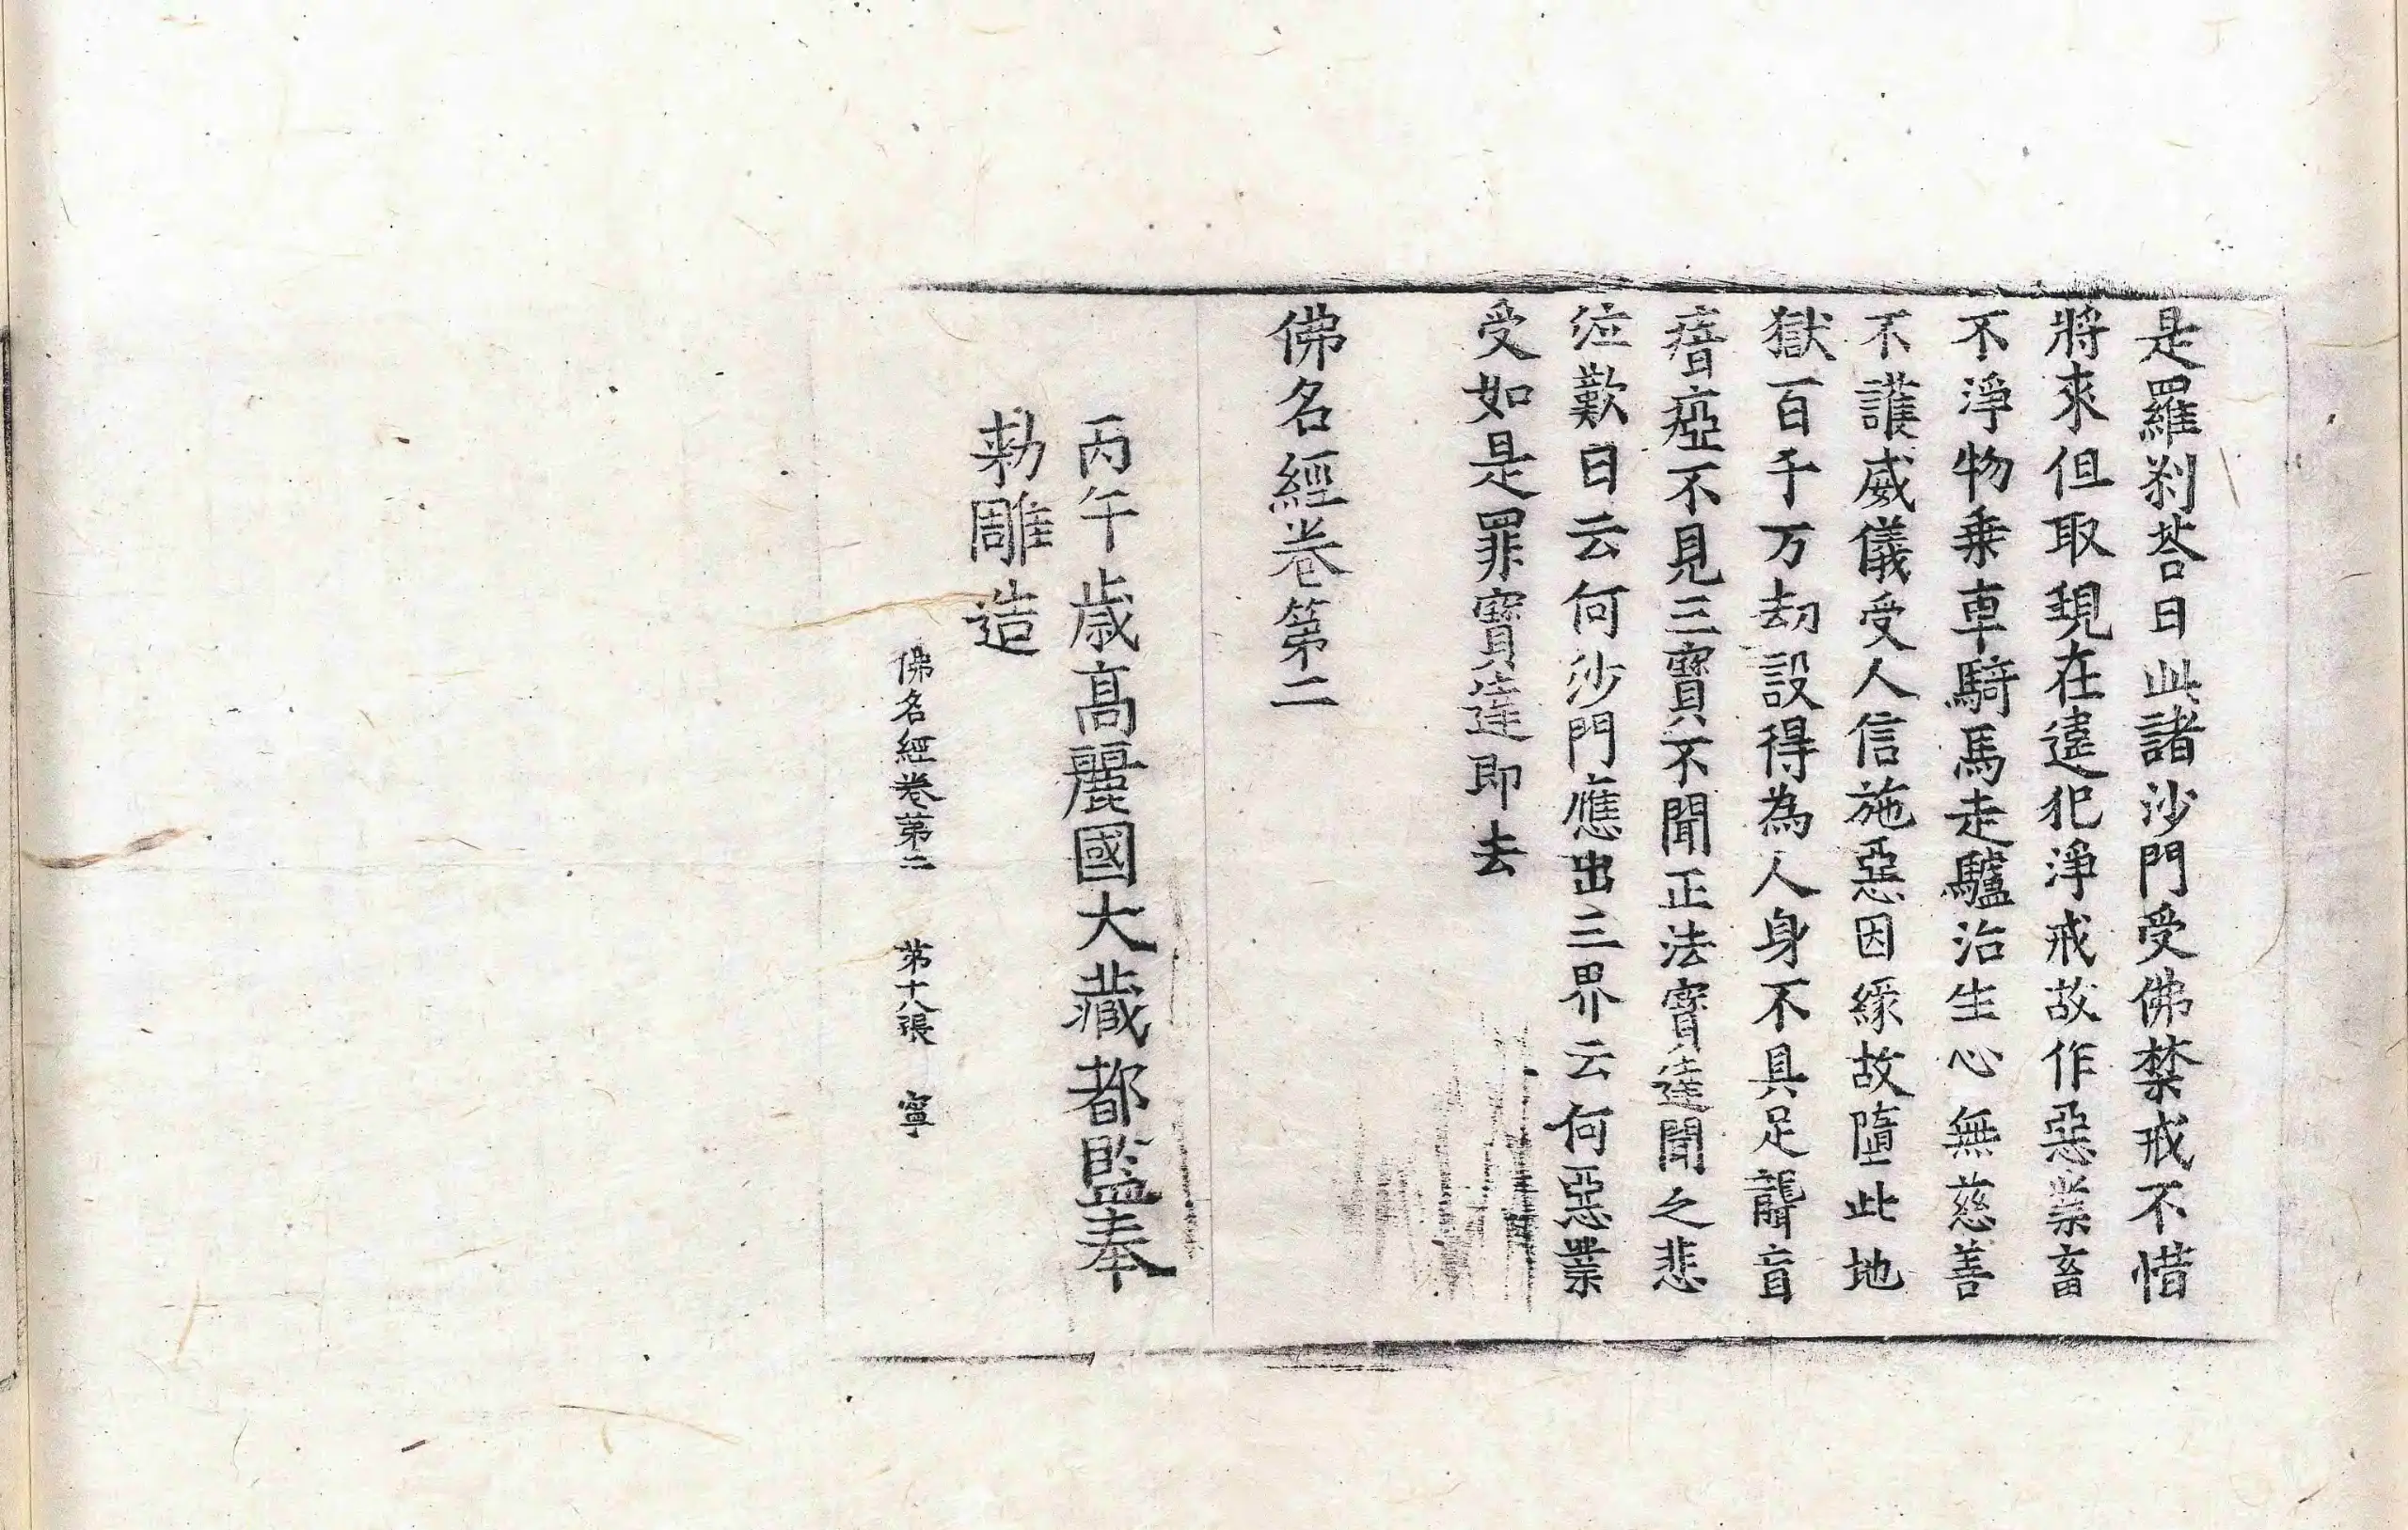 是羅刹荅曰此諸沙門受佛禁戒不惜
將來但取現在違犯淨戒故作惡業畜
不淨物乗車騎馬走驢治生心無慈善
不護威儀受人信施惡因緣故墮此地
獄百千万劫設得為人身不具足聾盲
瘖瘂不見三寶不聞正法寶達聞之悲
泣歎曰云何沙門應出三界云何惡業
受如是罪寶達即去
佛名經卷第二
丙午歳高麗國大藏都監奉
勑雕造
佛名經卷第二 第十八張 寧